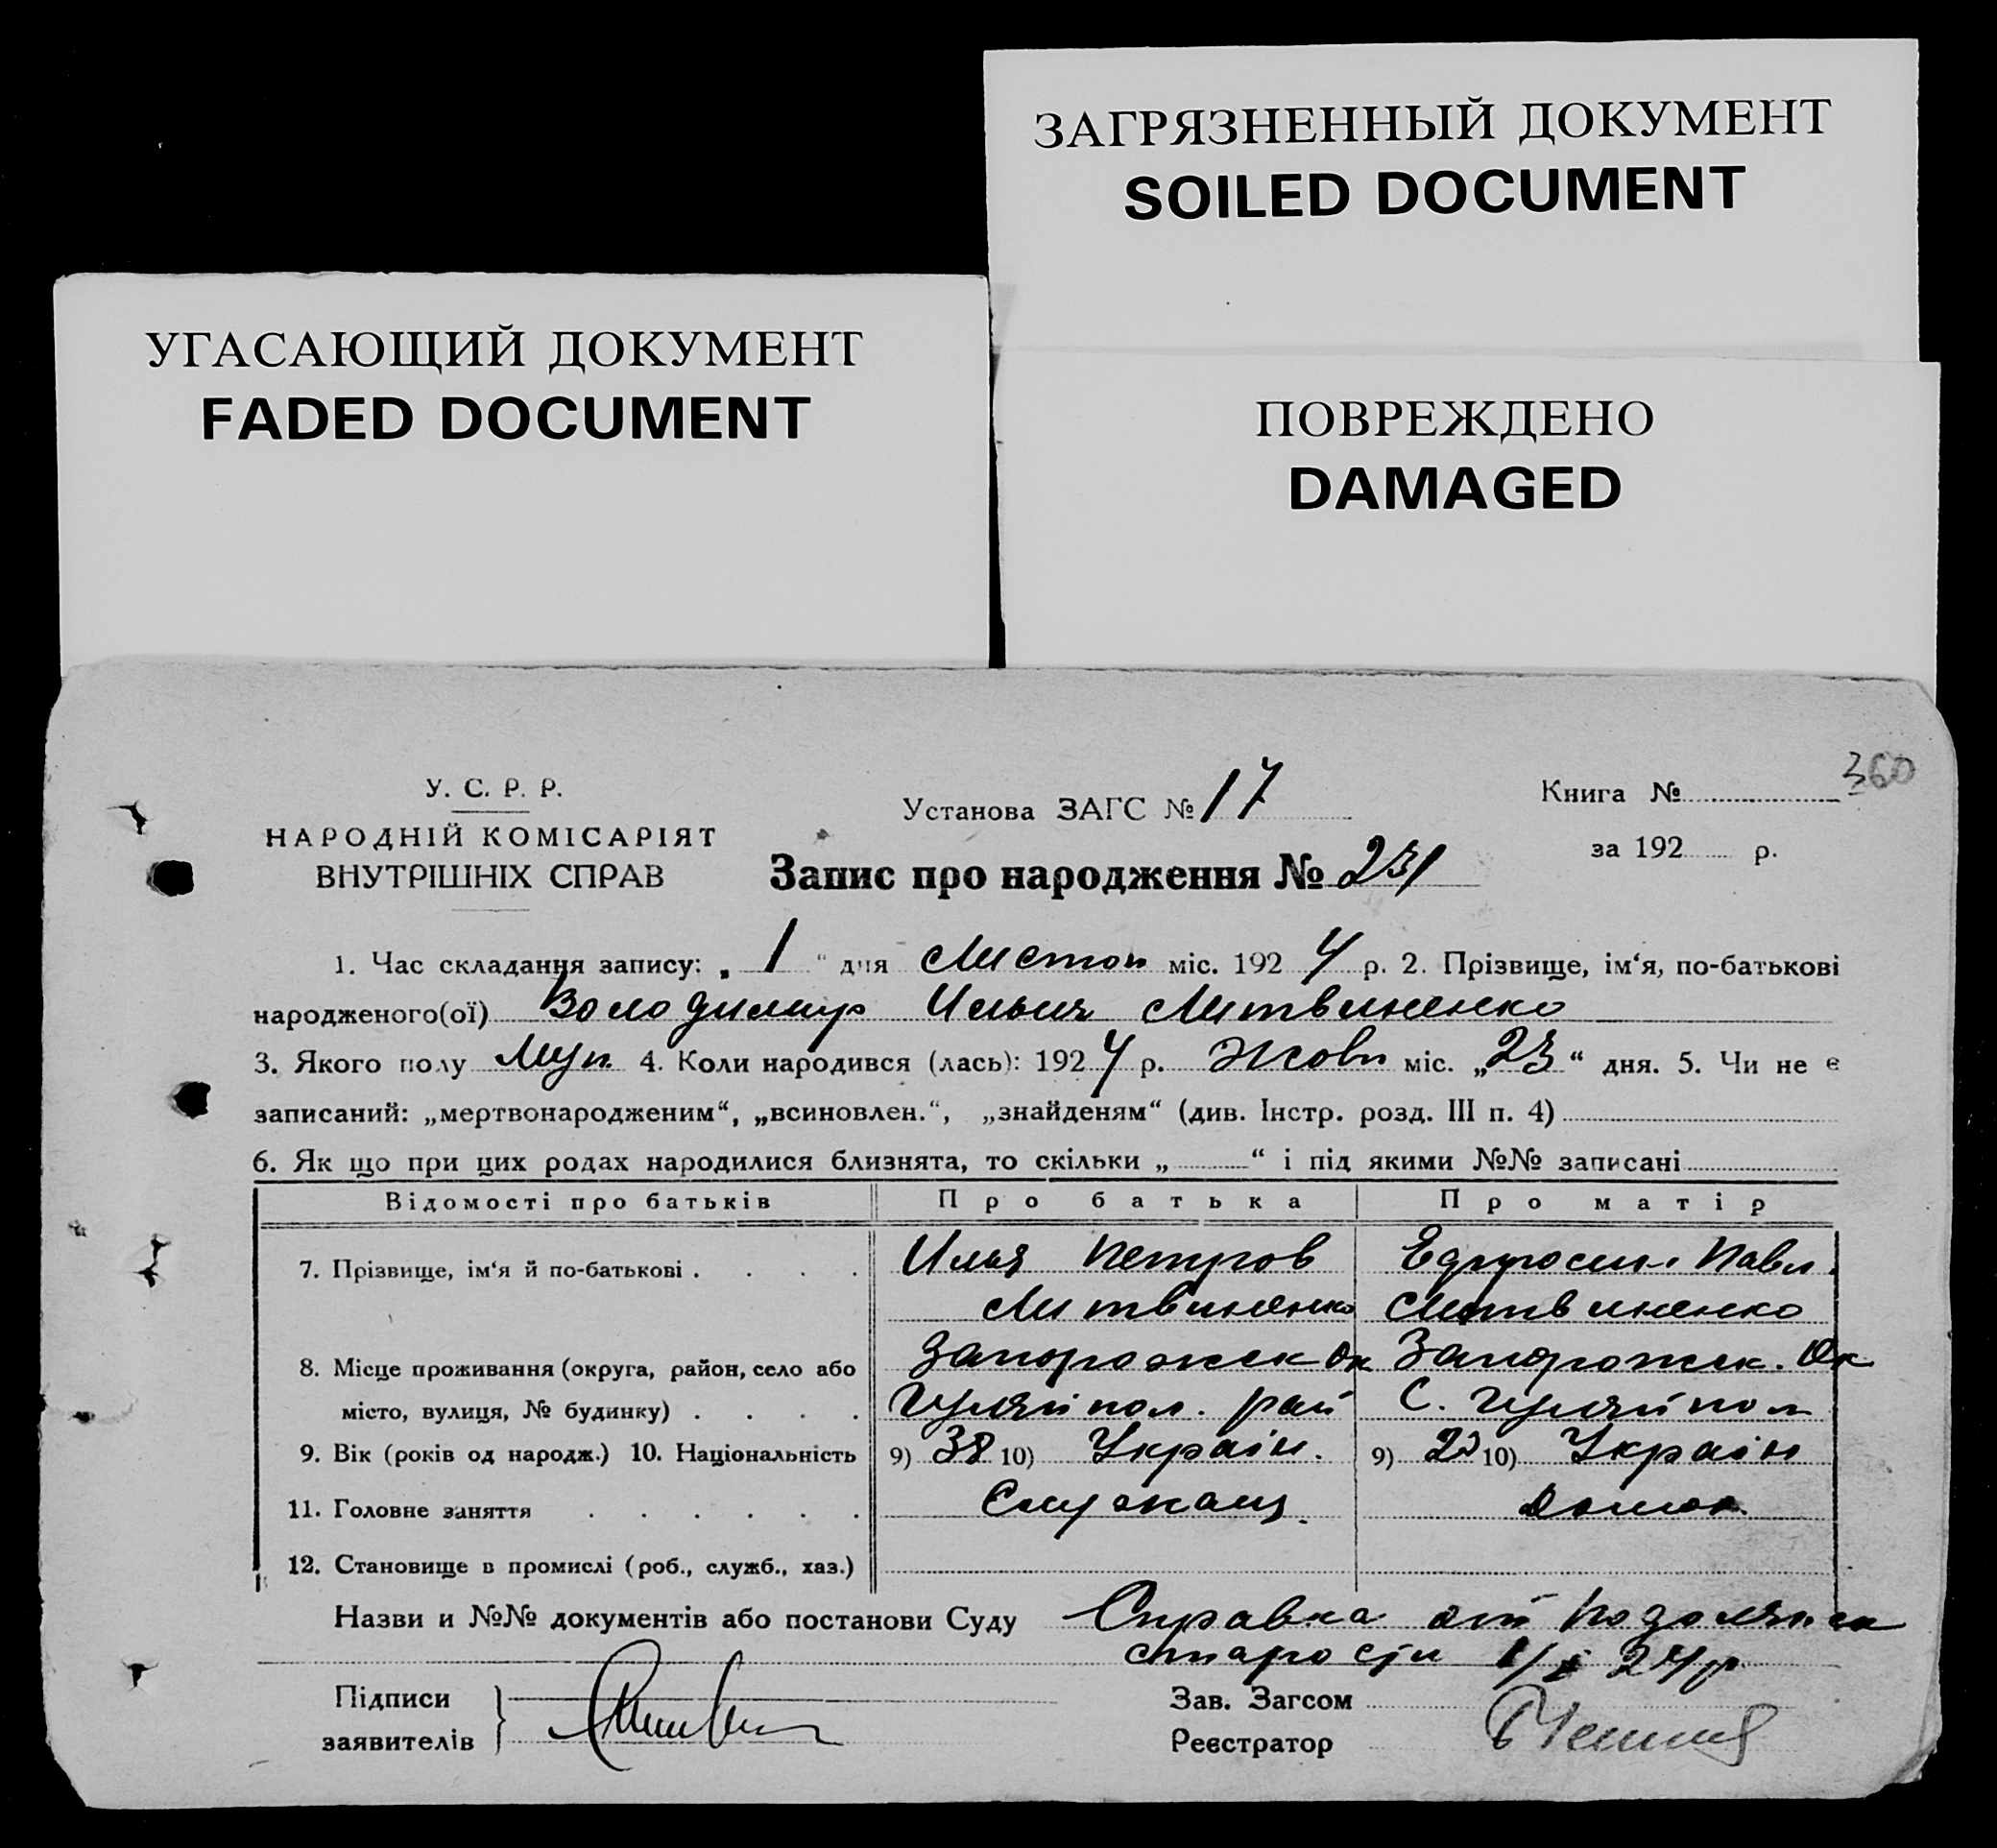 ЗАГРЯЗНЕННЫЙ ДОКУМЕНТ
SOILED DOCUMENT
УГАСАЮЩИЙ ДОКУМЕНТ
FADED DOCUMENT
ПОВРЕЖДЕНО
DAMAGED
360
У. С. Р. Р.
НАРОДНІЙ КОМІСАРІЯТ
ВНУТРІШНІХ СПРАВ
Установа ЗАГС № 17
Запис про народження № 231
Книга №
за 192 р.
1. Час складання запису: „ 1 “ дня Листоп міс. 192 4 р. 2. Прізвище, ім‘я, по-батькові
народженого(ої) Володимир Ильич Литвиненко
3. Якого полу Муж. 4. Коли народився (лась): 192 4 р. Жовт міс. „ 23 “ дня. 5. Чи не є
записаний: „мертвонародженим“, „всиновлен.“, „знайденям“ (див. Інстр. розд. III п. 4)
6. Як що при цих родах народилися близнята, то скільки „ “ і під якими №№ записані
Відомості про батьків Про батька Про матір
7. Прізвище, ім‘я й по-батькові . . . . Илья Петров Ефросин. Павл.
Литвиненко Литвиненко
8. Місце проживання (округа, район, село або Запорожск Ок Запорожск. Ок
місто, вулиця, № будинку) . . . . Гуляйпол. рай С. Гуляйпол
9. Вік (років од народж.) 10. Національність 9) 38 10) Україн. 9) 10) Україн
11. Головне заняття . . . . . . Служащ. Домох.
12. Становище в промислі (роб., служб., хаз.)
Назви и №№ документів або постанови Суду Справка от
24 р.
Підписи
заявителів
Зав. Загсом
Реєстратор